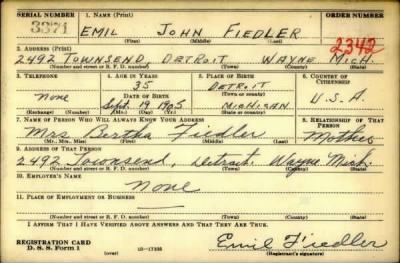 SERIAL NUMBER 1. NAME (Print) ORDER NUMBER
3371 EMIL JOHN FIEDLER
(First) (Middle) (Last) 2342
2. ADDRESS (Print)
2492 TOWNSEND, DETROIT WAYNE MICH.
(Number and street or R. F. D. number) (Town) (County) (State)
3. TELEPHONE 4. AGE IN YEARS 5. PLACE OF BIRTH 6. COUNTRY OF CITIZENSHIP
35 DETROIT
None DATE OF BIRTH (Town or county)
Sept. 19 1905 MICHIGAN U.S.A.
(Exchange) (Number) (Mo.) (Day) (Yr.) (State or country)
7. NAME OF PERSON WHO WILL ALWAYS KNOW YOUR ADDRESS 8. RELATIONSHIP OF THAT PERSON
Mrs Bertha Fiedler Mother
(Mr., Mrs., Miss) (First) (Middle) (Last)
9. ADDRESS OF THAT PERSON
2492 Townsend, Detroit. Wayne Mich.
(Number and street or R. F. D. number) (Town) (County) (State)
10. EMPLOYER'S NAME
None
11. PLACE OF EMPLOYMENT OR BUSINESS
(Number and street or R. F. D. number) (Town) (County) (State)
I AFFIRM THAT I HAVE VERIFIED ABOVE ANSWERS AND THAT THEY ARE TRUE.
REGISTRATION CARD
D. S. S. Form 1 Emil Fiedler
(Registrant's signature)